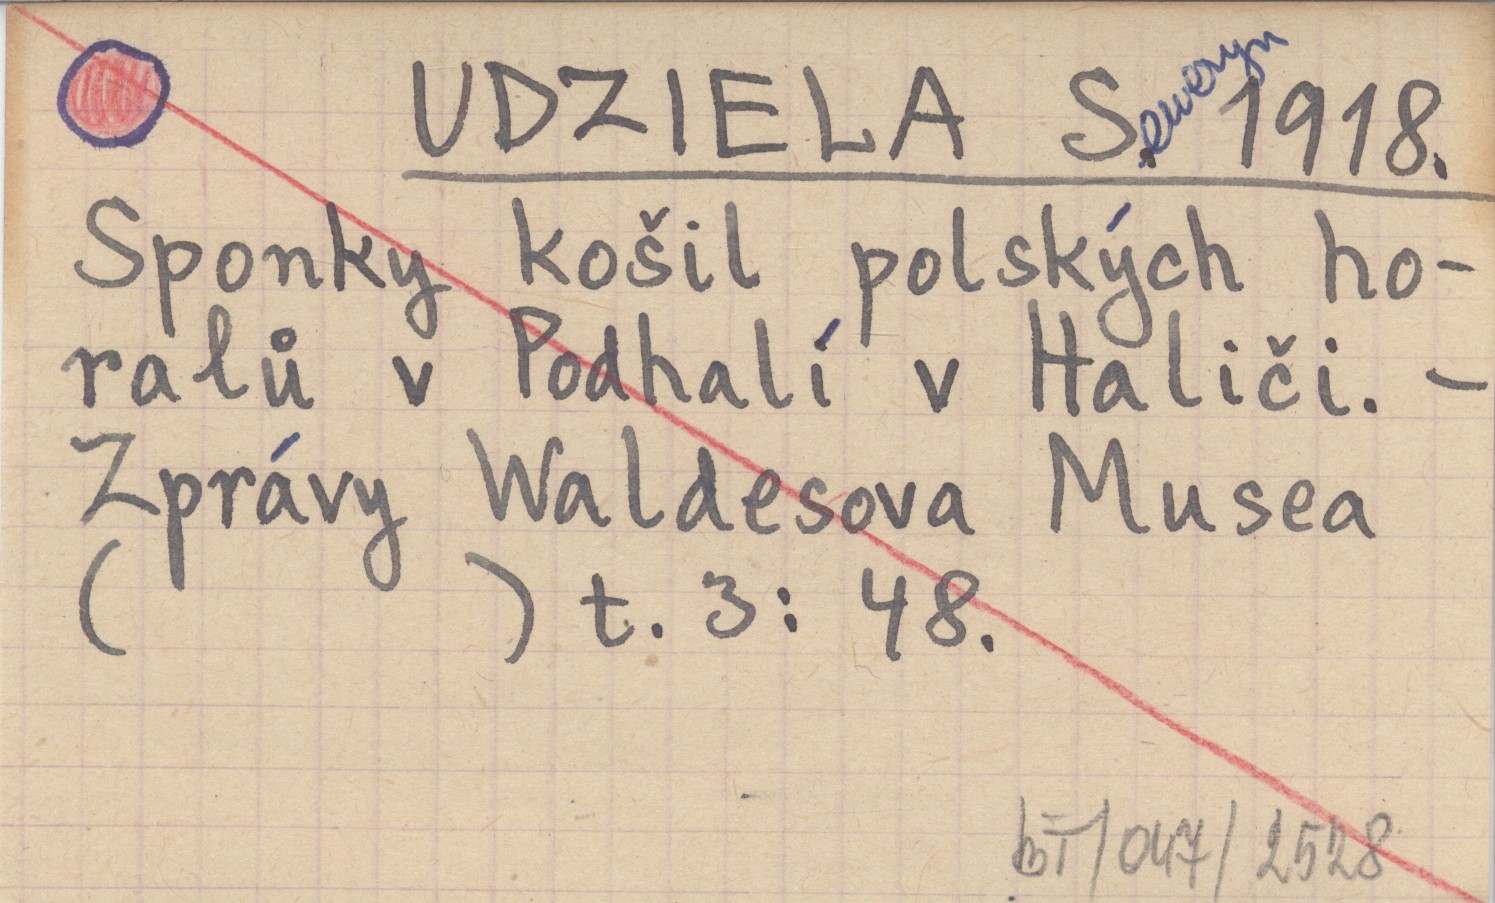 UDZIELA S.eweryn 1918.
Sponky košil polských ho-
ralů v Podhalí v Haliči. -
Zprávy Waldesova Musea
( ) t. 3: 48.
/047/2528